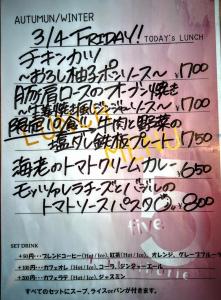 AUTUMUN/WINTER
3/4 FRIDAY!!
TODAY's LUNCH
チキンカツ
～おろし柚子ポンソース～ ¥700
豚肩ロースのオーブン焼き
～生姜焼き風ジンジャーソース～ ¥700
限定10食!! 牛肉と野菜の
塩ダレ鉄板プレート ¥750
海老のトマトクリームカレー ¥650
モッツァレラチーズとバジルの
トマトソースパスタ ¥800
five.
SET DRINK
+50円…ブレンドコーヒー(Hot/Ice)、紅茶(Hot/Ice)、オレンジ、グレープフルーツ
+100円…カフェオレ(Hot/Ice)、コーラ、ジンジャーエール
+200円…カフェラテ(Hot/Ice)、ジャスミン
すべてのセットにスープ、ライスorパンが付きます。